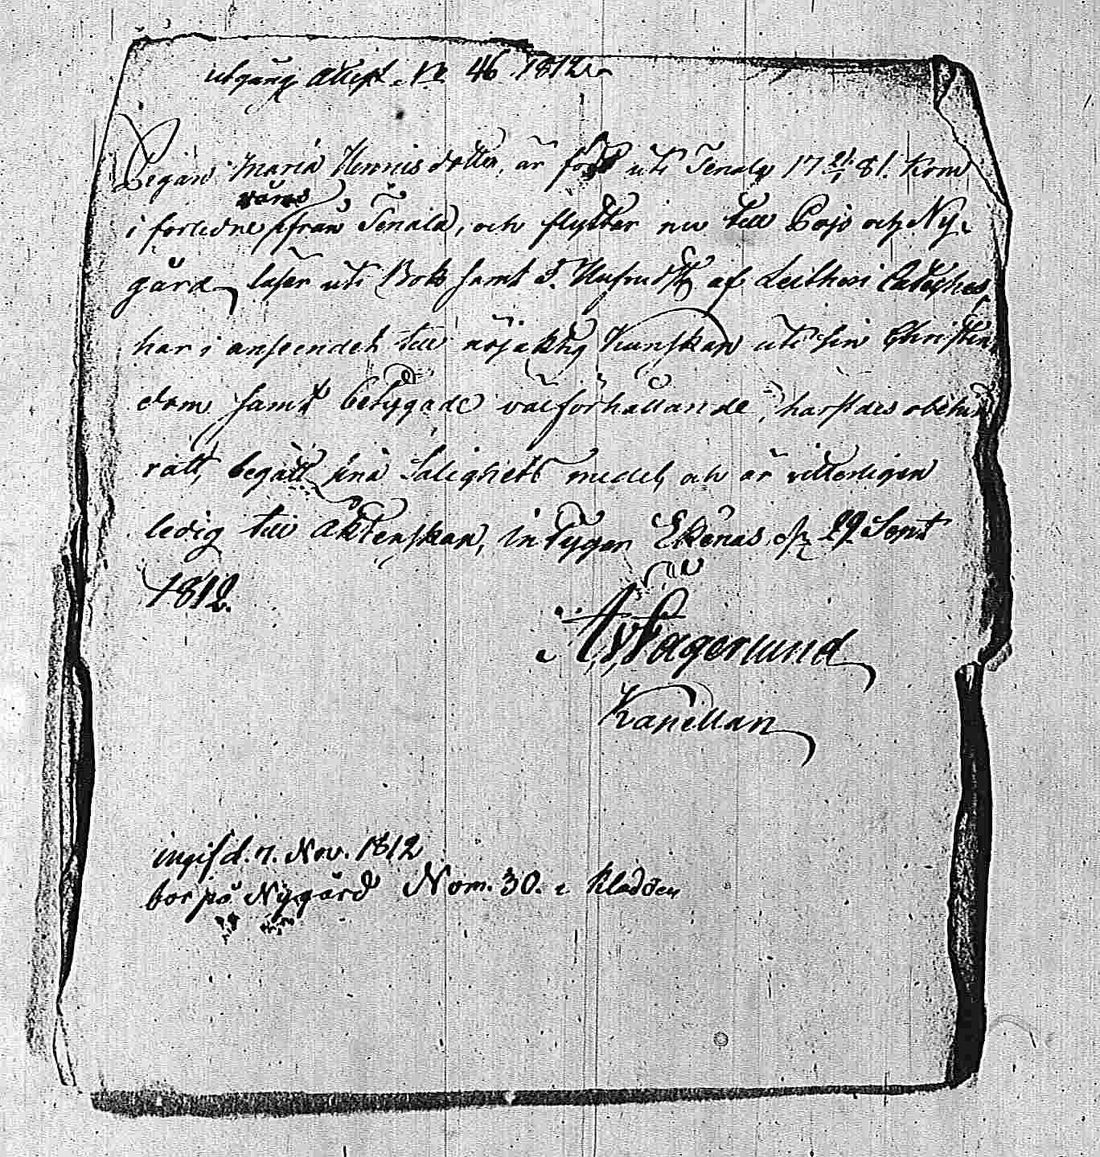 utgång Attest No 46 1812
Pegan Maria Hennis dotter, är född uti Tenala 17 21/1 81. Kom
våras
i förledne från Tenala, och flytter nu till Pojo och Ny-
gård läser uti Bok samt af Lutheri Cateches
har i anseendet till nöjaktig Kunskap uti sin Christen
dom samt betygade välförhållande, harstädes obehin
rätt, begått sina Salighets medel, och är vitterligen
ledig till äktenskap, intygar Ekenäs 29 Sept
1812.
Fagerlund
Kapellan
ingifd. 7. Nov. 1812
bor på Nygård Nom. 30. i Kladden